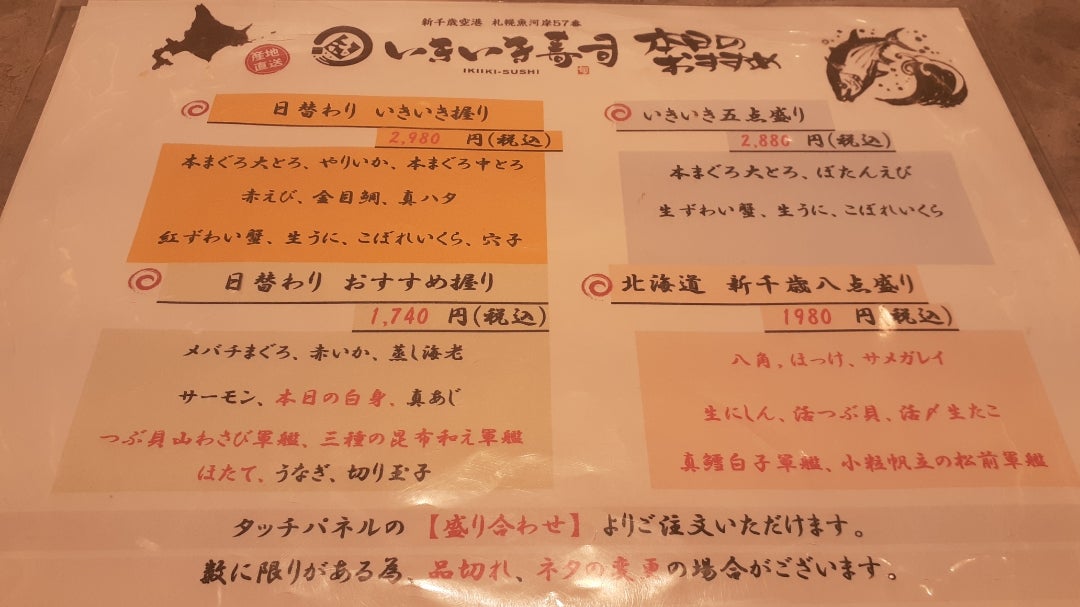 新千歳空港 札幌魚河岸57番
いきいき寿司
IKIIKI-SUSHI
本日の
おすすめ
産地
直送
日替わり いきいき握り
2,980 円(税込)
本まぐろ大とろ、やりいか、本まぐろ中とろ
赤えび、金目鯛、真ハタ
紅ずわい蟹、生うに、こぼれいくら、穴子
いきいき五点盛り
2,880 円(税込)
本まぐろ大とろ、ぼたんえび
生ずわい蟹、生うに、こぼれいくら
日替わり おすすめ握り
1,740 円(税込)
メバチまぐろ、赤いか、蒸し海老
サーモン、本日の白身、真あじ
つぶ貝山わさび軍艦、三種の昆布和え軍艦
ほたて、うなぎ、切り玉子
北海道 新千歳八点盛り
1980 円(税込)
八角、ほっけ、サメガレイ
生にしん、活つぶ貝、活〆生たこ
真鱈白子軍艦、小粒帆立の松前軍艦
タッチパネルの【盛り合わせ】よりご注文いただけます。
数に限りがある為、品切れ、ネタの変更の場合がございます。